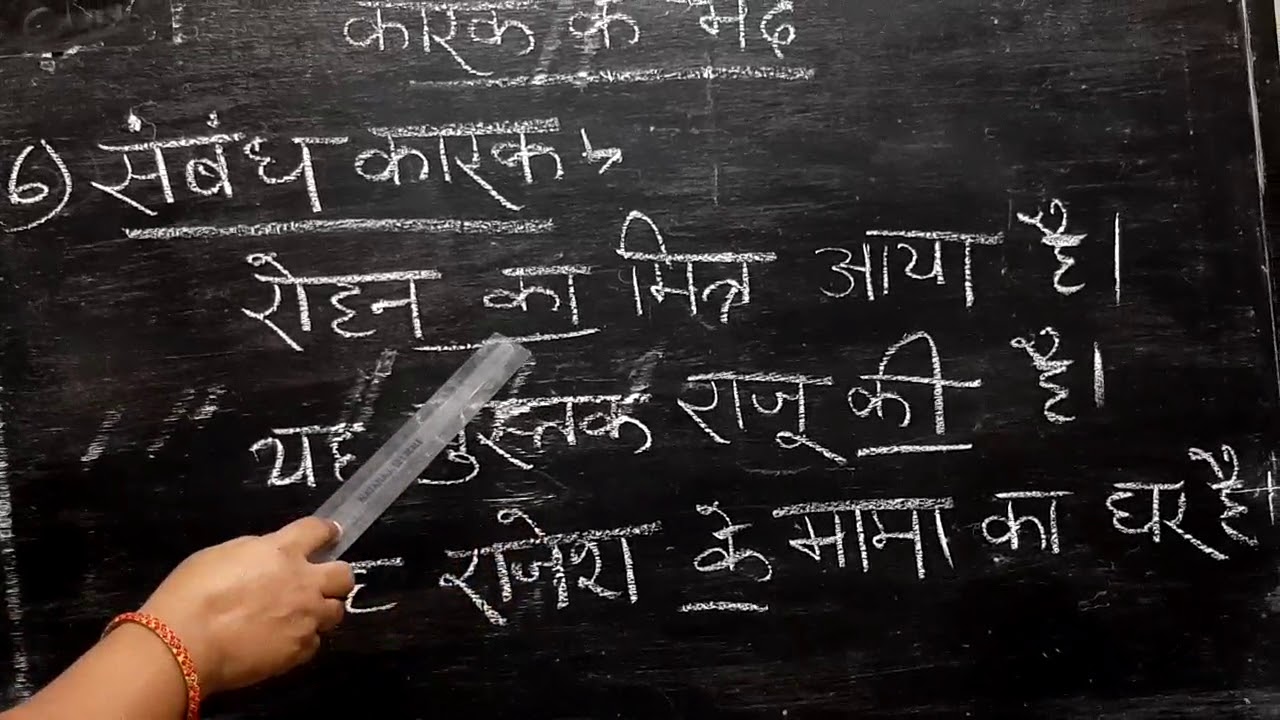 कारक के भेद
6) संबंध कारक ↳
रोहन का मित्र आया है।
यह पुस्तक राजू की है।
राजेश के मामा का घर है।